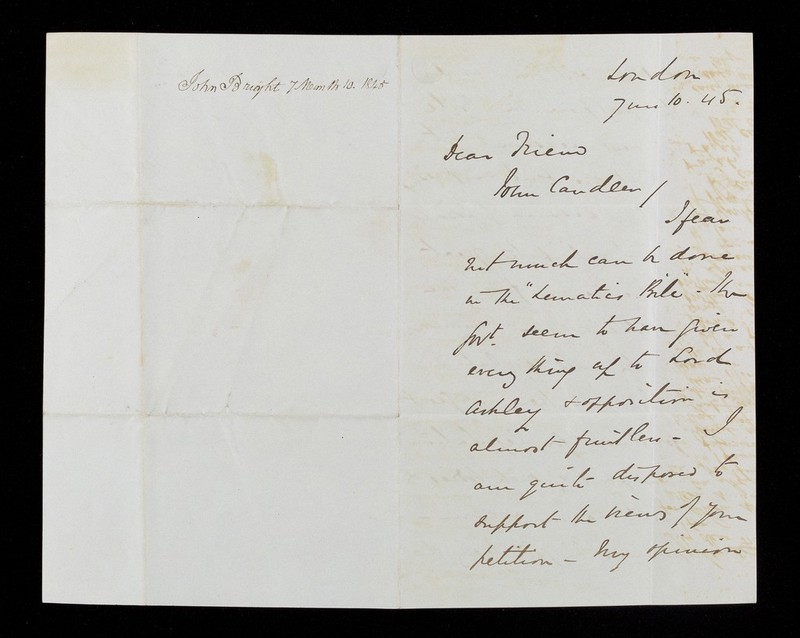 John Bright 7 Month 10. 1845
London
7 mo 10. 45.
Dear Friend
John Candler /
I fear
not much can be done
in the "Lunatics Bill" - The
Govt. seem to have given
every thing up to Lord
Ashley & opposition is
almost fruitless - I
am quite disposed to
support the views of your
petition - My opinion